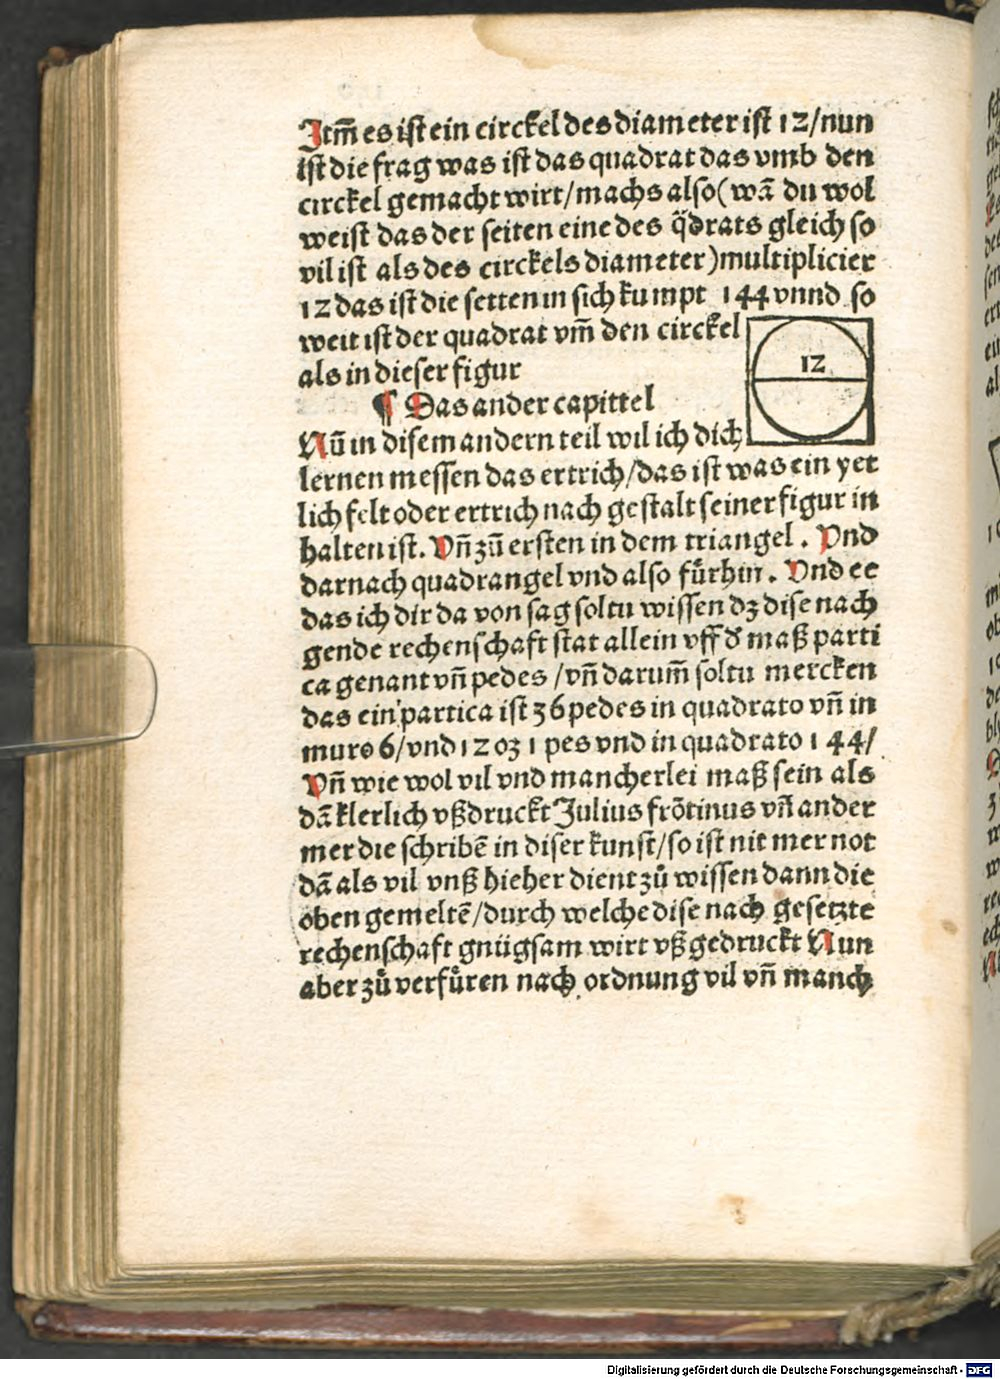 Itm̄ es ist ein circkel des diameter ist 12/nun
ist die frag was ist das quadrat das vmb den
circkel gemacht wirt/machs also(wā du wol
weist das der seiten eine des q̈drats gleich so
vil ist als des circkels diameter)multiplicier
12 das ist die setten in sich kumpt 144 vnnd so
weit ist der quadrat vm̄ den circkel
als in dieser figur
12
¶ Das ander capittel
Nū in disem andern teil wil ich dich
lernen messen das ertrich/das ist was ein yet
lich felt oder ertrich nach gestalt seiner figur in
halten ist. Vn̄ zū ersten in dem triangel. Vnd
darnach quadrangel vnd also fůrhin. Vnd ee
das ich dir da von sag soltu wissen dz dise nach
gende rechenschaft stat allein vff d̄ maß parti
ca genant vn̄ pedes/vn̄ darum̄ soltu mercken
das ein partica ist 36 pedes in quadrato vn̄ in
muro 6/vnd 12 oz 1 pes vnd in quadrato 144/
Vn̄ wie wol vil vnd mancherlei maß sein als
dā klerlich vßdruckt Julius frōtinus vn̄ ander
mer die schribē in diser kunst/so ist nit mer not
dā als vil vnß hieher dient zů wissen dann die
oben gemeltē/durch welche dise nach gesetzte
rechenschaft gnügsam wirt vß gedruckt Nun
aber zů verfůren nach ordnung vil vn̄ manch
Digitalisierung gefördert durch die Deutsche Forschungsgemeinschaft - DFG